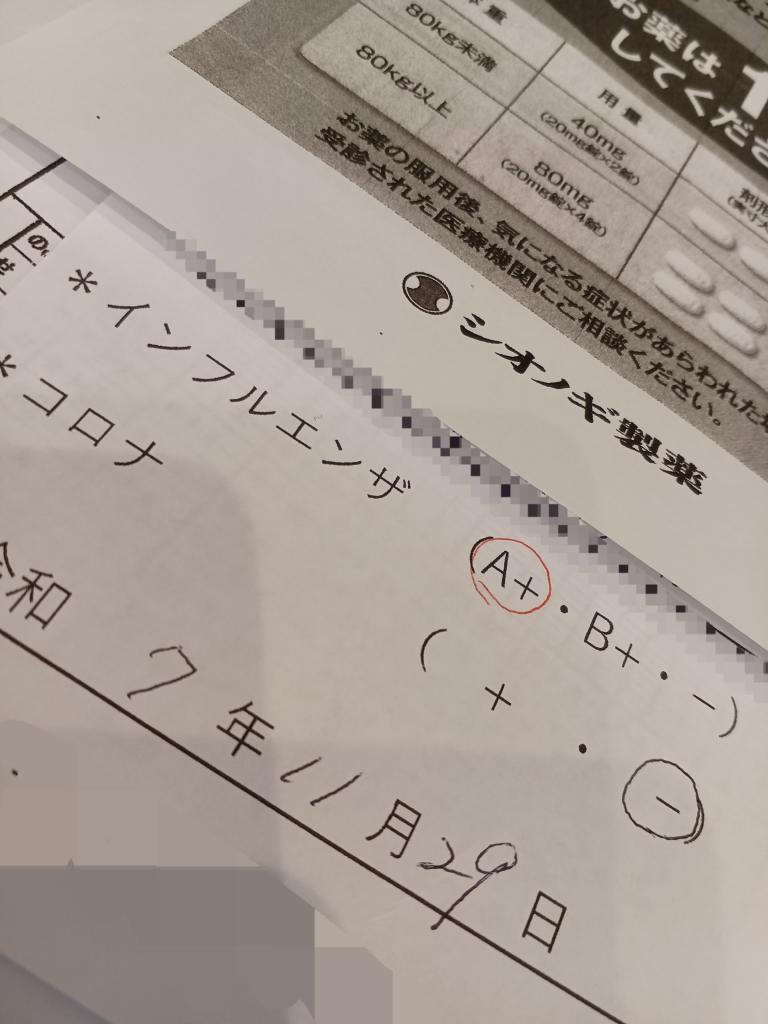 お薬は 1
してくださ
体重
用量
80kg未満
40mg
(20mg錠×2錠)
80kg以上
80mg
(20mg錠×4錠)
お薬の服用後、気になる症状があらわれた場
受診された医療機関にご相談ください。
シオノギ製薬
*インフルエンザ (A+・B+・-)
*コロナ ( + ・ -)
令和 7年11月29日